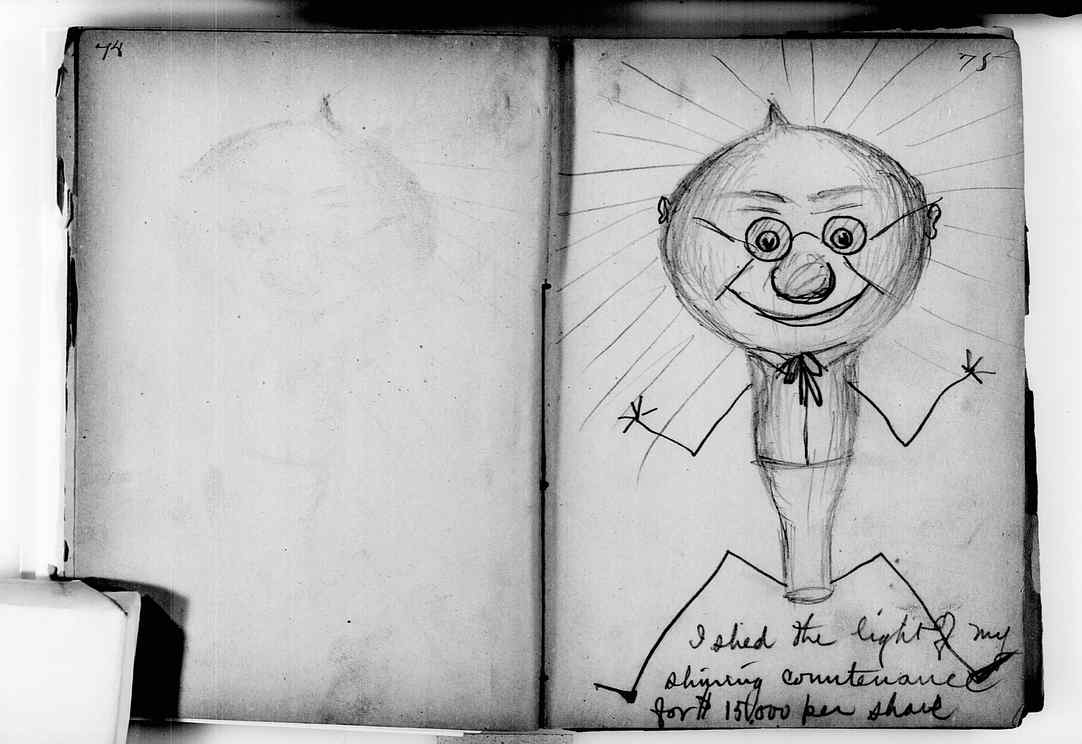 74
75
I shed the light of my
shining countenance
for $ 15,000 per share